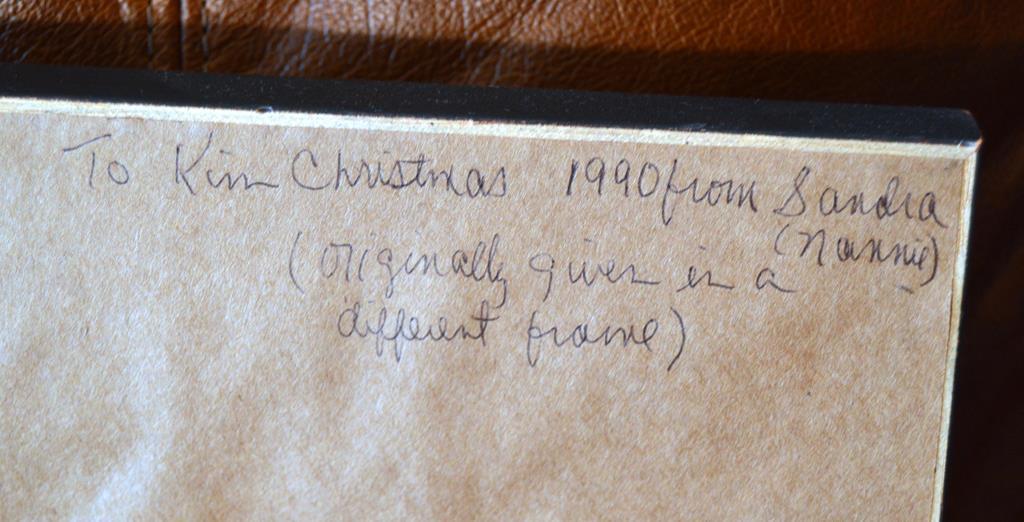 To Kim Christmas 1990 from Sandra
(Nannie)
(originally given in a
different frame)